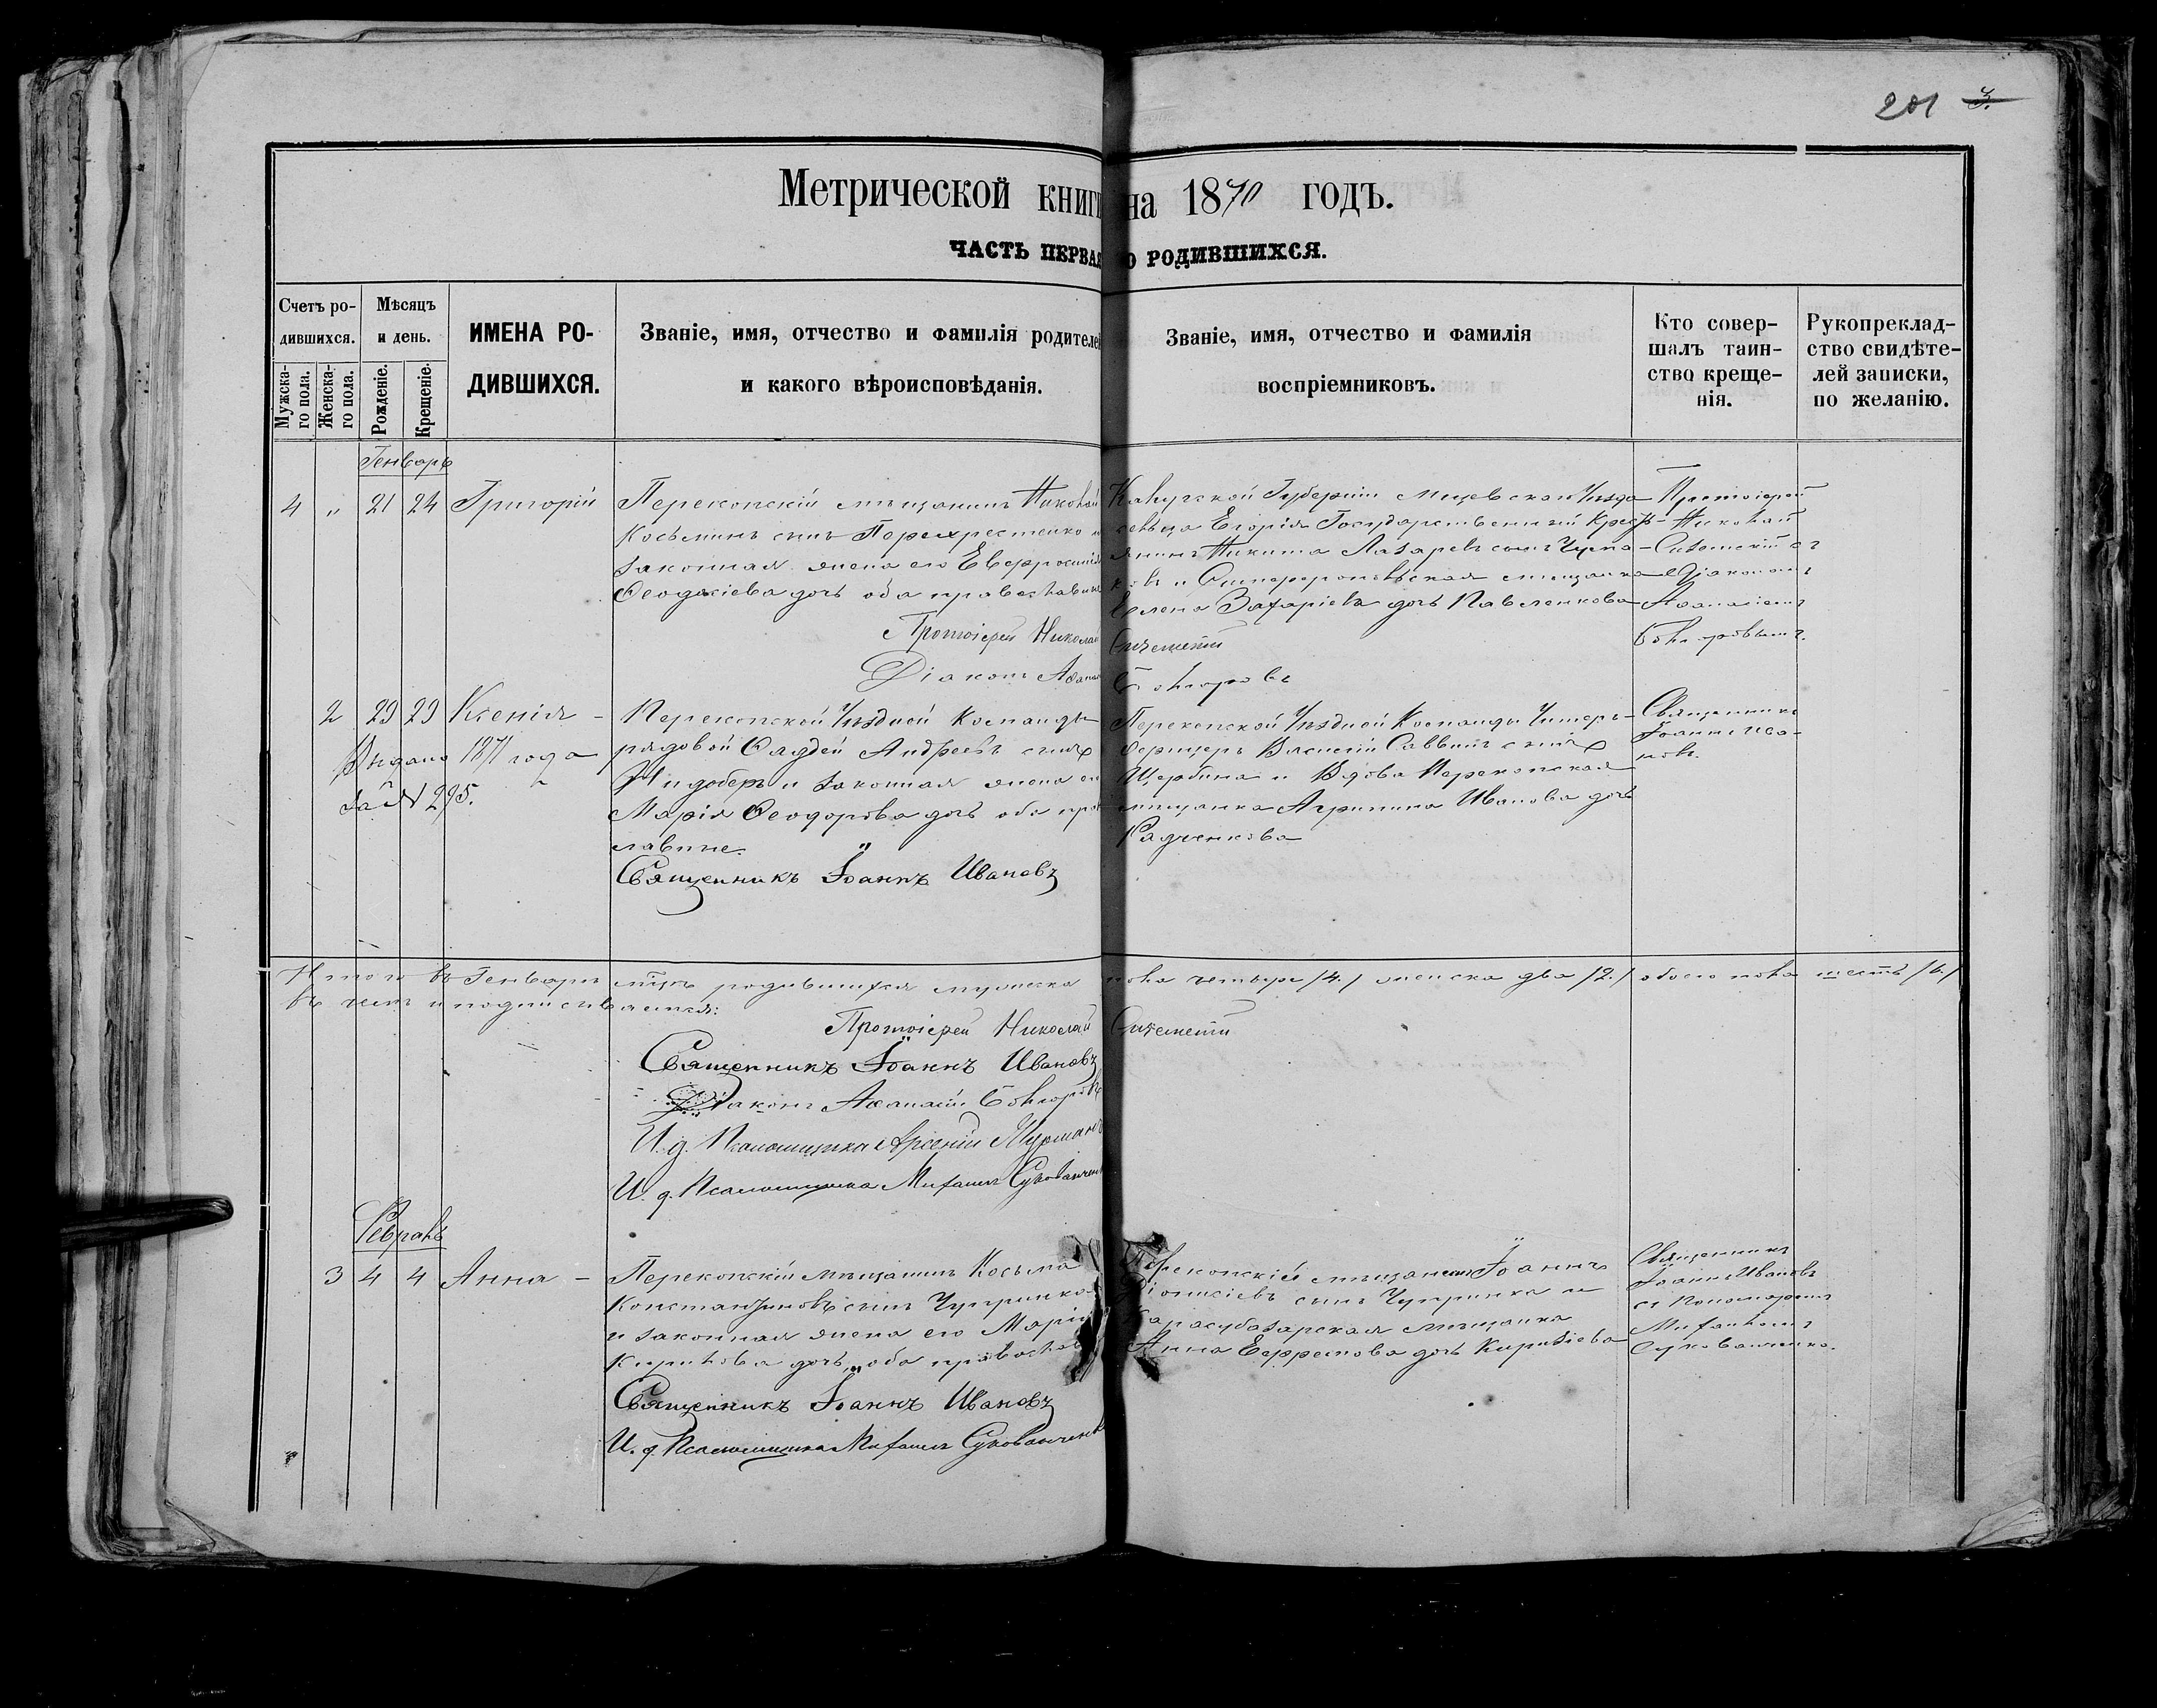 201 3.
Метрической книги на 1870 годъ.
ЧАСТЬ ПЕРВАЯ О РОДИВШИХСЯ.
Счетъ ро-
дившихся.
Мужска-
го пола.
Женска-
го пола.
Мѣсяцъ
и день.
Рожденіе.
Крещеніе.
ИМЕНА РО-
ДИВШИХСЯ.
Званіе, имя, отчество и фамилія родителей
и какого вѣроисповѣданія.
Званіе, имя, отчество и фамилія
воспріемниковъ.
Кто совер-
шалъ таин-
ство креще-
нія.
Рукоприклад-
ство свидѣте-
лей записки,
по желанію.
Генварь
4 " 21 24 Григорій
Перекопскій мѣщанинъ Николай
Косьминъ сынъ Перехрестенко и
законная жена его Евфросинія
Ѳеодосіева дочь оба православные
Протоіерей Николай
Діаконъ Аѳанасій
Калужской Губерніи Мещевскаго Уѣзда
сельца Егорія Государственный Кресть-
янинъ Никита Лазаревъ сынъ
и Симферопольская мѣщанка
Елена Захаріева дочь Павленкова
Протоіерей
Николай
съ
Діакономъ
Аѳанасіемъ
2 29 29 Ксенія -
Выдано 1871 года
за № 295.
Перекопской Уѣздной Команды
рядовой Ѳадей Андреевъ сынъ
и законная жена его
Марія Ѳеодорова дочь оба право-
славные.
Священникъ Іоаннъ Ивановъ
Перекопской Уѣздной Команды Унтеръ-
офицеръ Василій Саввинъ сынъ
Щербина и Вдова Перекопская
мѣщанка Агрипина Иванова дочь
Радченкова
Священникъ
Іоаннъ Ива-
новъ.
Итого въ Генварѣ мѣсяцѣ родившихся мужеска пола четыре /4./ женска два /2./ обоего пола шесть /6./
въ чемъ и подписываемся:
Протоіерей Николай
Священникъ Іоаннъ Ивановъ
Діаконъ Аѳанасій
И. д. Псаломщика Арсеній
И. д. Псаломщика Михаилъ
Февраль
3 4 4 Анна -
Перекопскій мѣщанинъ Косьма
Константиновъ сынъ Чупринка
и законная жена его Марія
Кирилова дочь, оба православ
Священникъ Іоаннъ Ивановъ
И. д. Псаломщика Михаилъ
Перекопскій мѣщанинъ Іоаннъ
Діонисіевъ сынъ Чупринка и
Карасубазарская мѣщанка
Анна Ефремова дочь
Священникъ
Іоаннъ Ивановъ
съ Пономаремъ
Михаиломъ